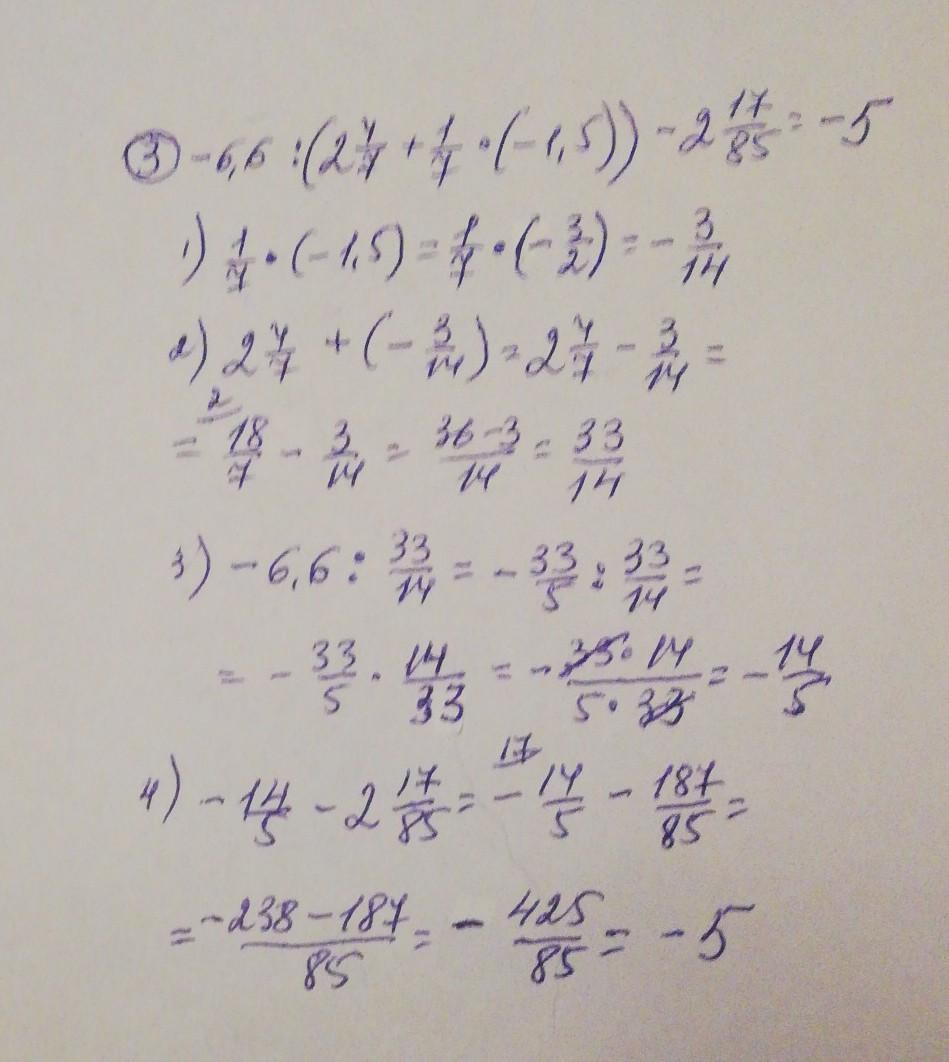 ③ -6,6 : (2 4/7 + 1/7 · (-1,5)) - 2 17/85 = -5
1) 1/7 · (-1,5) = 1/7 · (-3/2) = - 3/14
2) 2 4/7 + (- 3/14) = 2 4/7 - 3/14 =
= ²⁄ 18/7 - 3/14 = 36-3/14 = 33/14
3) -6,6 : 33/14 = - 33/5 : 33/14 =
= - 33/5 · 14/33 = - 33·14/5·33 = - 14/5
4) - 14/5 - 2 17/85 = ¹⁷⁄ - 14/5 - 187/85 =
= -238-187/85 = - 425/85 = -5